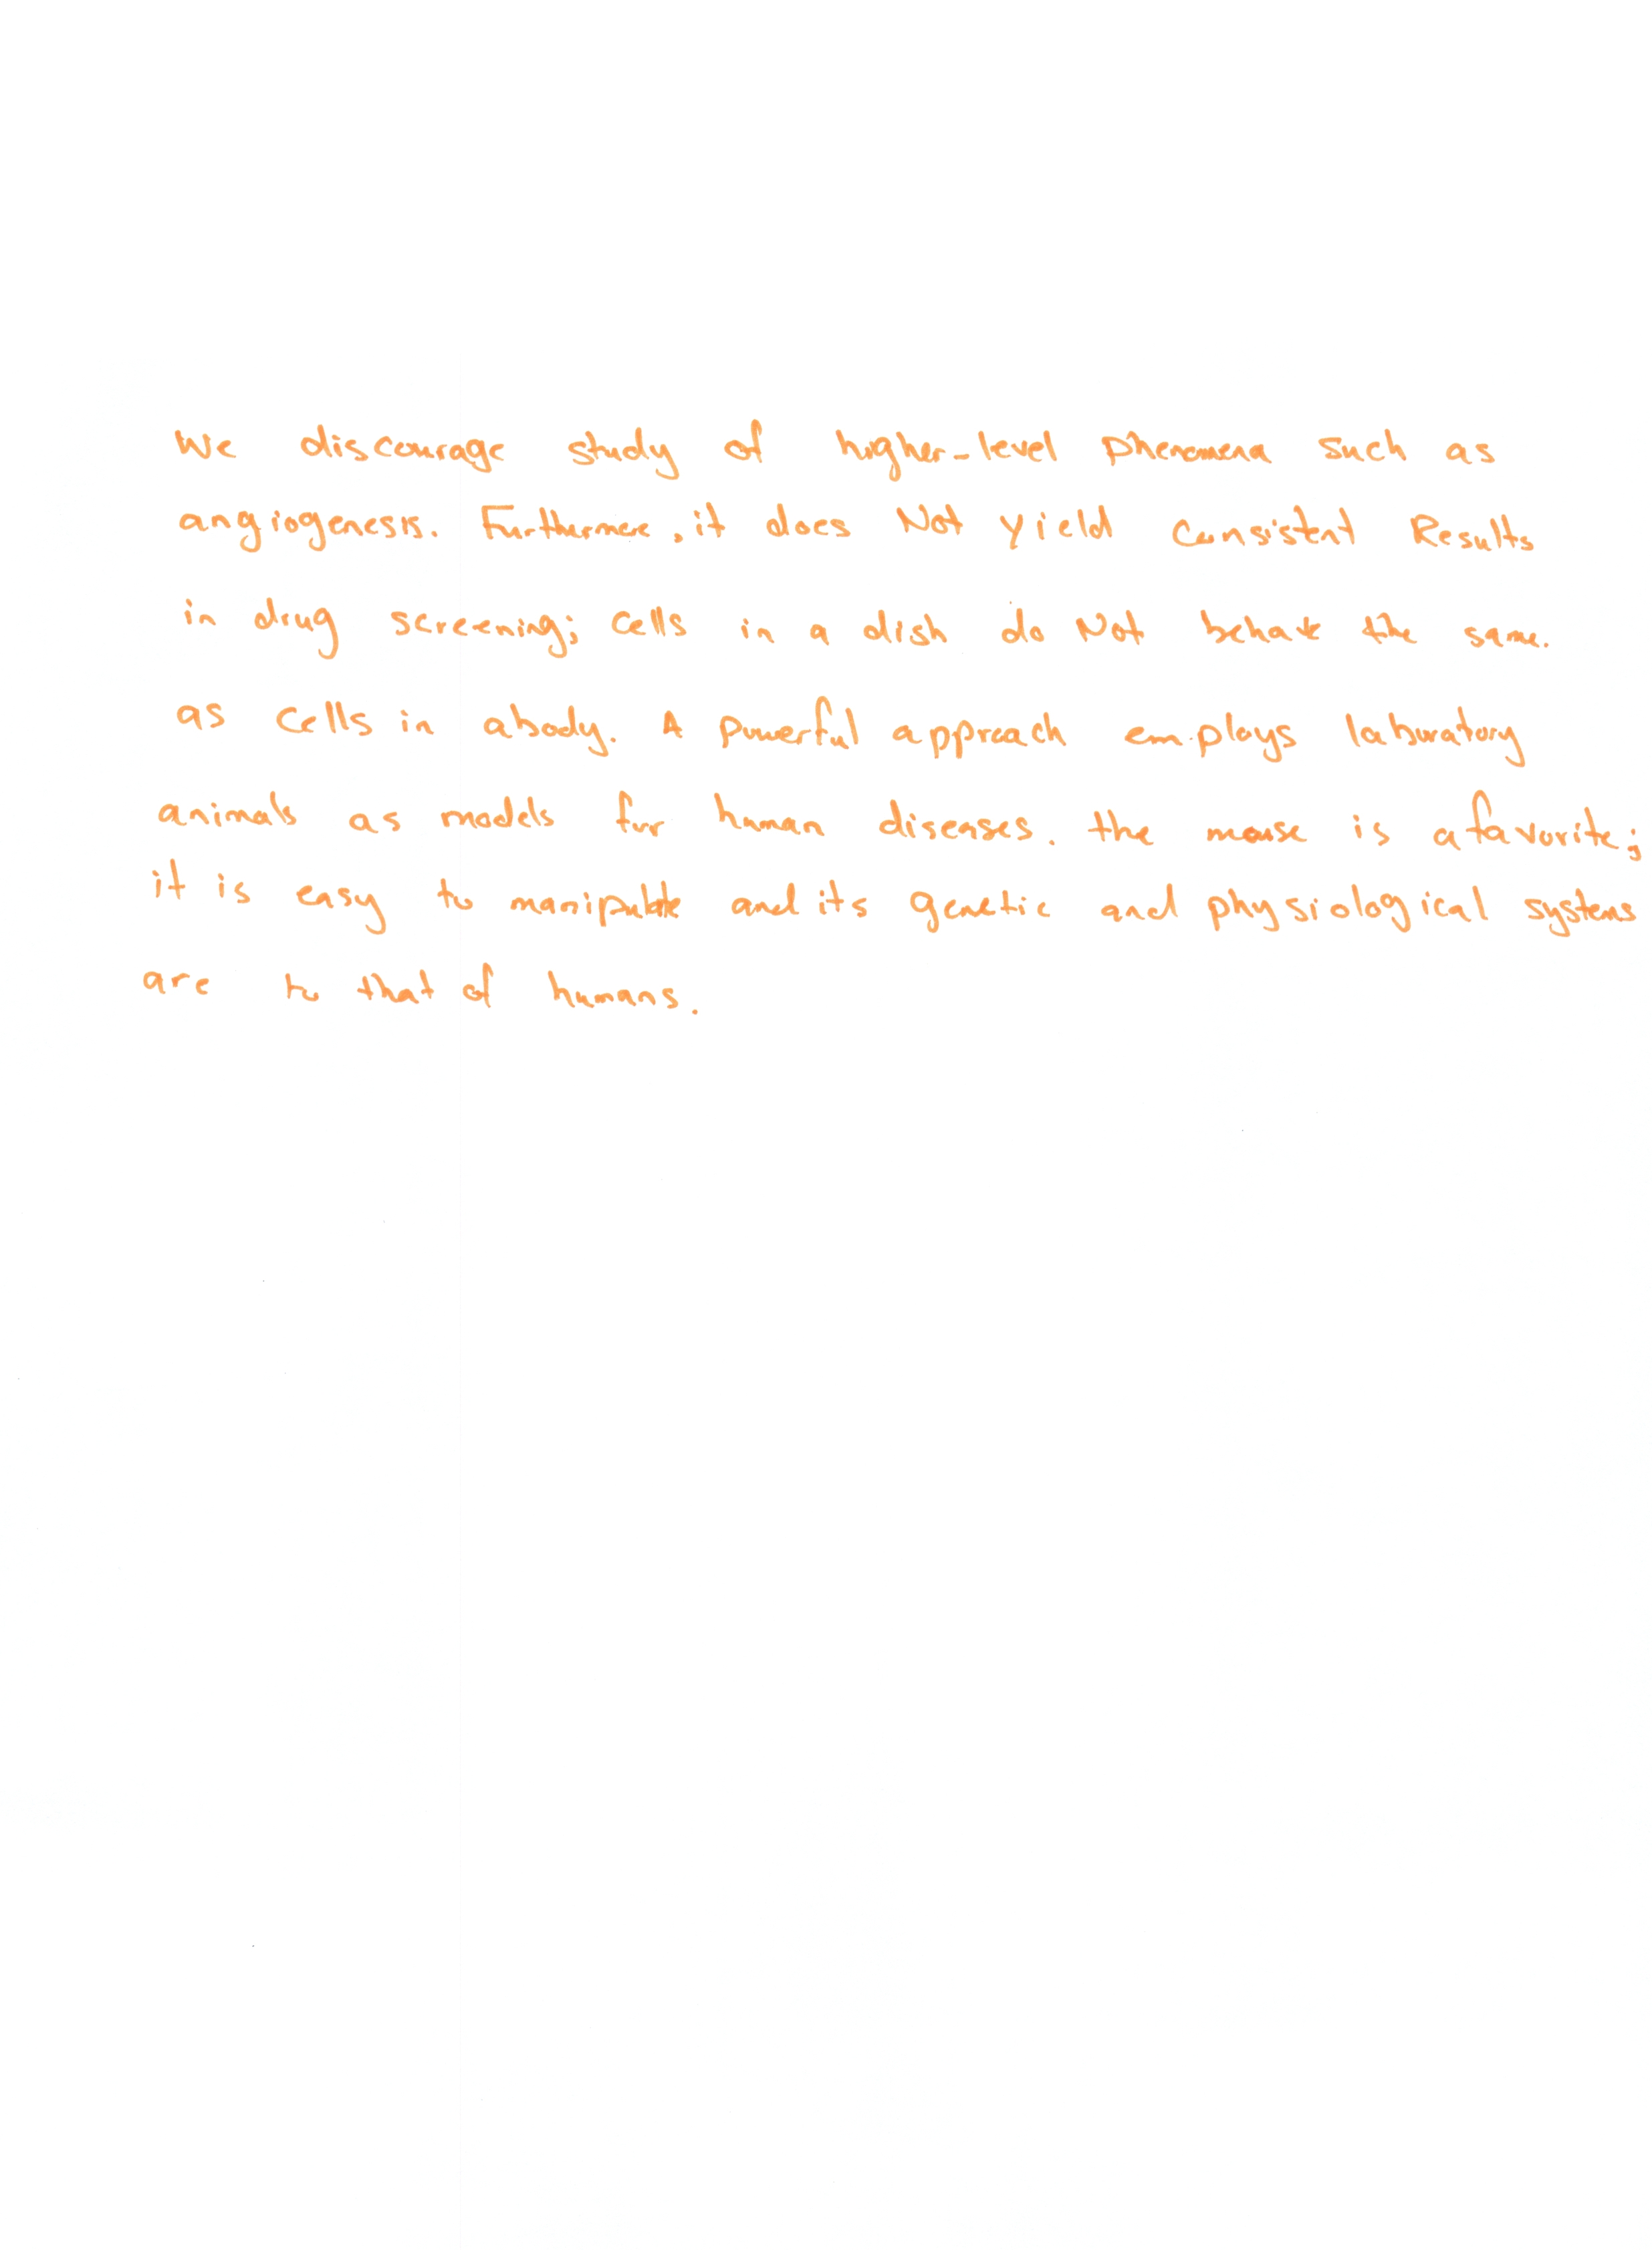 We discourage study of higher-level phenomena such as
angiogenesis. Furthermore, it does Not yield consistent Results
in drug screening; cells in a dish do Not behave the same.
as cells in a body. A powerful approach employs laboratory
animals as models for human diseases. the mouse is a favorite;
it is easy to manipulate and its genetic and physiological systems
are to that of humans.